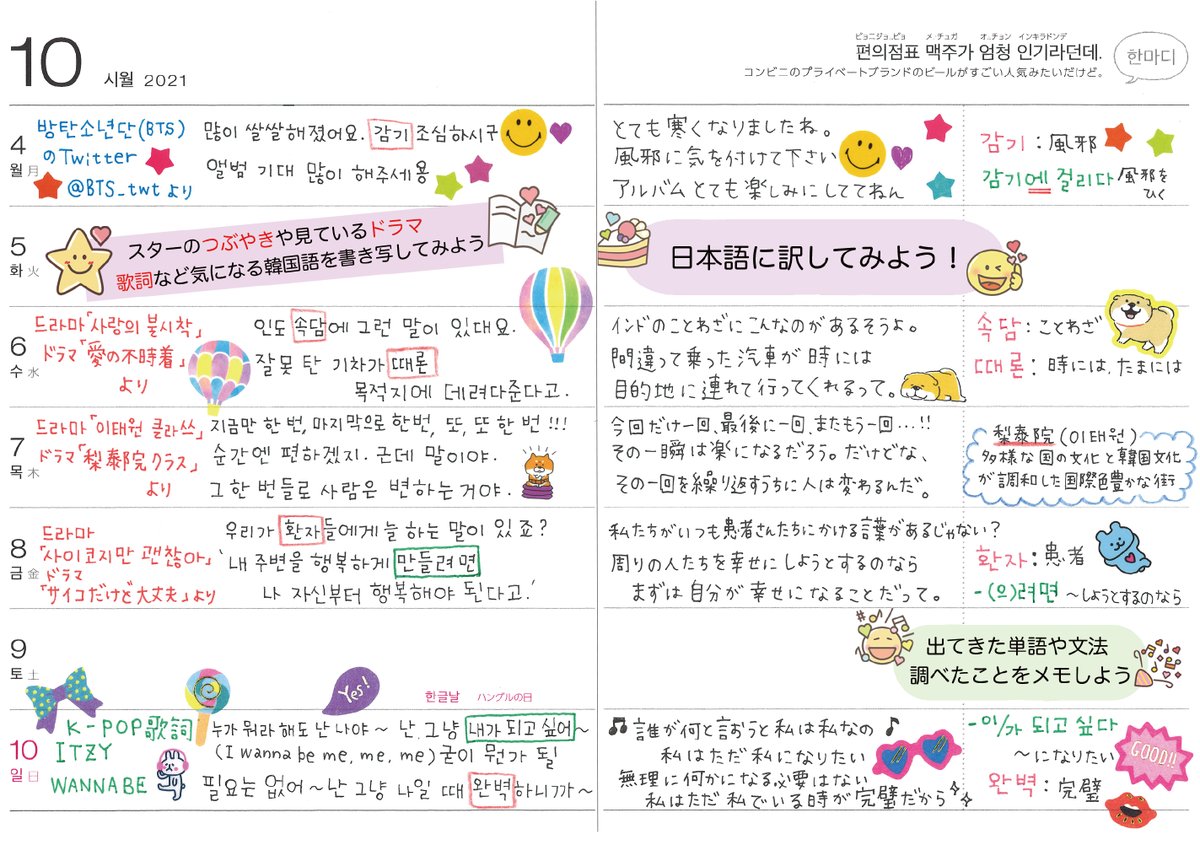 10 시월 2021
ピョニジョ..ピョ メ..チュガ オ..チョン インキラドンデ
편의점표 맥주가 엄청 인기라던데.
コンビニのプライベートブランドのビールがすごい人気みたいだけど。
한마디
4
월 月
방탄소년단(BTS)
のTwitter
@BTS_twt より
많이 쌀쌀해졌어요. 감기 조심하시구
앨범 기대 많이 해주세용
とても寒くなりましたね。
風邪に気を付けて下さい
アルバムとても楽しみにしててねん
감기 : 風邪
감기에 걸리다 風邪を
ひく
5
화 火
スターのつぶやきや見ているドラマ
歌詞など気になる韓国語を書き写してみよう
日本語に訳してみよう！
6
수 水
ドラマ「사랑의 불시착」
ドラマ「愛の不時着」
より
인도 속담에 그런 말이 있대요.
잘못 탄 기차가 때론
목적지에 데려다준다고.
インドのことわざにこんなのがあるそうよ。
間違って乗った汽車が時には
目的地に連れて行ってくれるって。
속담 : ことわざ
때론 : 時には、たまには
7
목 木
ドラマ「이태원 클라쓰」
ドラマ「梨泰院クラス」
より
지금만 한 번, 마지막으로 한번, 또, 또 한 번 !!!
순간엔 편하겠지. 근데 말이야.
그 한 번들로 사람은 변하는 거야.
今回だけ一回、最後に一回、またもう一回…!!
その一瞬は楽になるだろう。だけどな、
その一回を繰り返すうちに人は変わるんだ。
梨泰院(이태원)
多様な国の文化と韓国文化
が調和した国際色豊かな街
8
금 金
ドラマ
「사이코지만 괜찮아」
ドラマ
「サイコだけど大丈夫」より
우리가 환자들에게 늘 하는 말이 있죠?
'내 주변을 행복하게 만들려면
나 자신부터 행복해야 된다고.'
私たちがいつも患者さんたちにかける言葉があるじゃない？
周りの人たちを幸せにしようとするのなら
まずは自分が幸せになることだって。
환자 : 患者
-(으)려면 ~しようとするのなら
9
토 土
Yes!
한글날 ハングルの日
出てきた単語や文法
調べたことをメモしよう
10
일 日
K-POP歌詞
ITZY
WANNABE
누가 뭐라 해도 난 나야~ 난 그냥 내가 되고 싶어~
(I wanna be me, me, me) 굳이 뭔가 될
필요는 없어~ 난 그냥 나일 때 완벽하니까~
誰が何と言おうと私は私なの
私はただ私になりたい
無理に何かになる必要はない
私はただ私でいる時が完璧だから
-이/가 되고 싶다
~になりたい
완벽 : 完璧
GOOD!!